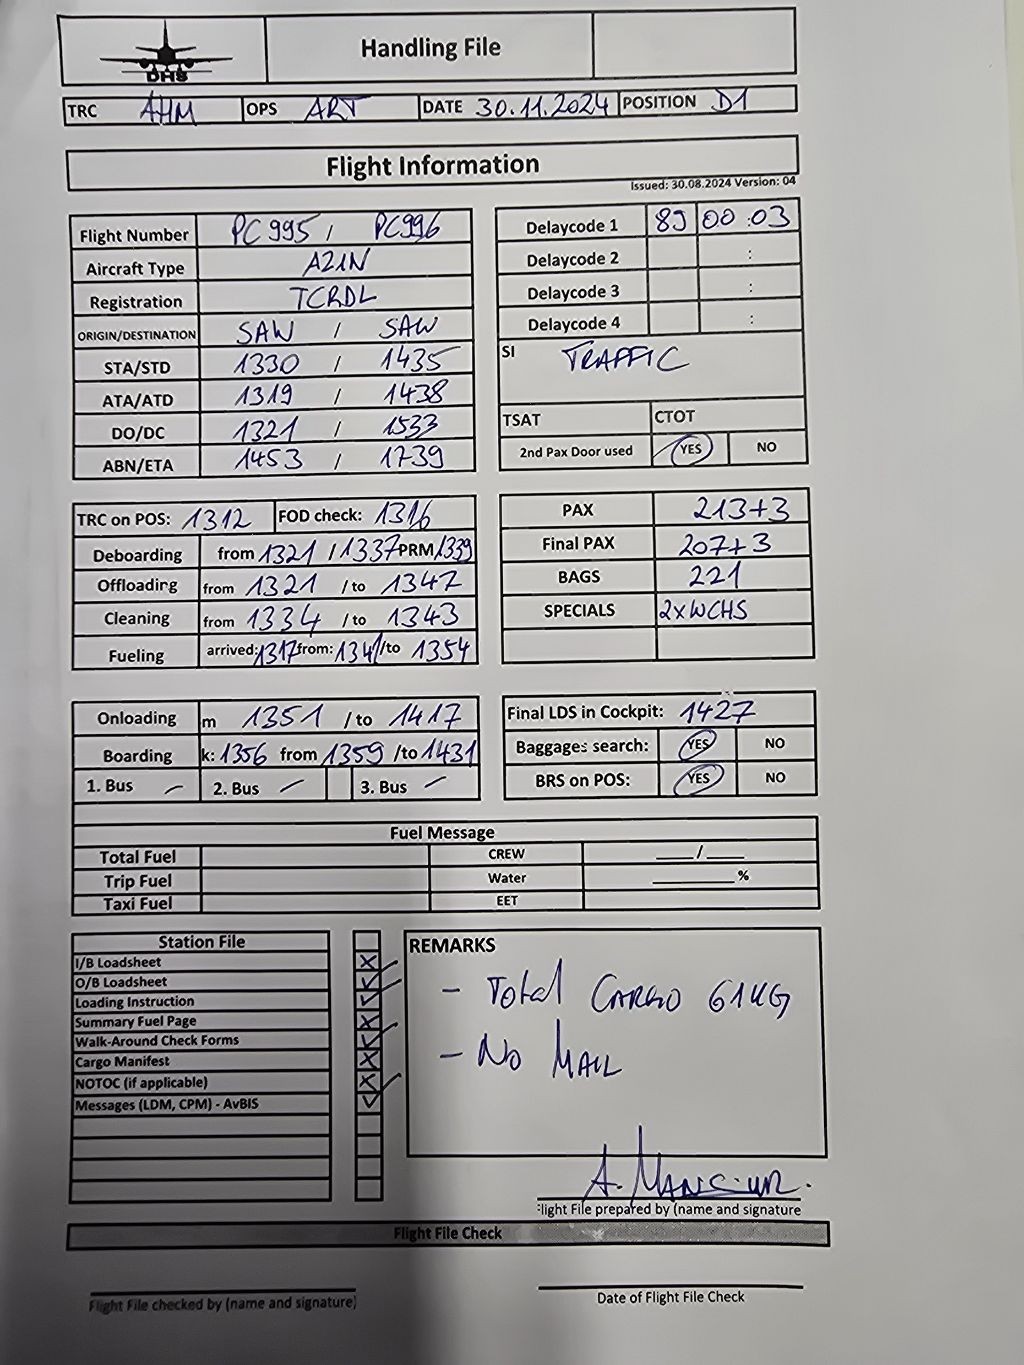 DHS
Handling File
TRC AHM OPS ART DATE 30.11.2024 POSITION D1
Flight Information
Issued: 30.08.2024 Version: 04
Flight Number PC995 / PC996
Aircraft Type A21N
Registration TCRDL
ORIGIN/DESTINATION SAW / SAW
STA/STD 1330 / 1435
ATA/ATD 1319 / 1438
DO/DC 1321 / 1533
ABN/ETA 1453 / 1739
Delaycode 1 89 00:03
Delaycode 2 :
Delaycode 3 :
Delaycode 4 :
SI TRAFFIC
TSAT CTOT
2nd Pax Door used YES NO
TRC on POS: 1312 FOD check: 1316
Deboarding from 1321 / 1337 PRM/1339
Offloading from 1321 /to 1347
Cleaning from 1334 /to 1343
Fueling arrived: 1317 from: 1341 /to 1354
PAX 213+3
Final PAX 207+3
BAGS 221
SPECIALS 2xWCHS
Onloading m 1351 /to 1417
Boarding k: 1356 from 1359 /to 1431
1. Bus – 2. Bus – 3. Bus –
Final LDS in Cockpit: 1427
Baggages search: YES NO
BRS on POS: YES NO
Fuel Message
Total Fuel CREW ___/___
Trip Fuel Water ______%
Taxi Fuel EET
Station File
I/B Loadsheet X
O/B Loadsheet ✓
Loading Instruction ✓
Summary Fuel Page X
Walk-Around Check Forms ✓
Cargo Manifest X
NOTOC (if applicable) X
Messages (LDM, CPM) - AvBIS ✓
REMARKS
- Total CARGO 61KG
- No MAIL
A. MANSOUR.
:light File prepared by (name and signature
Flight File Check
Flight File checked by (name and signature)
Date of Flight File Check